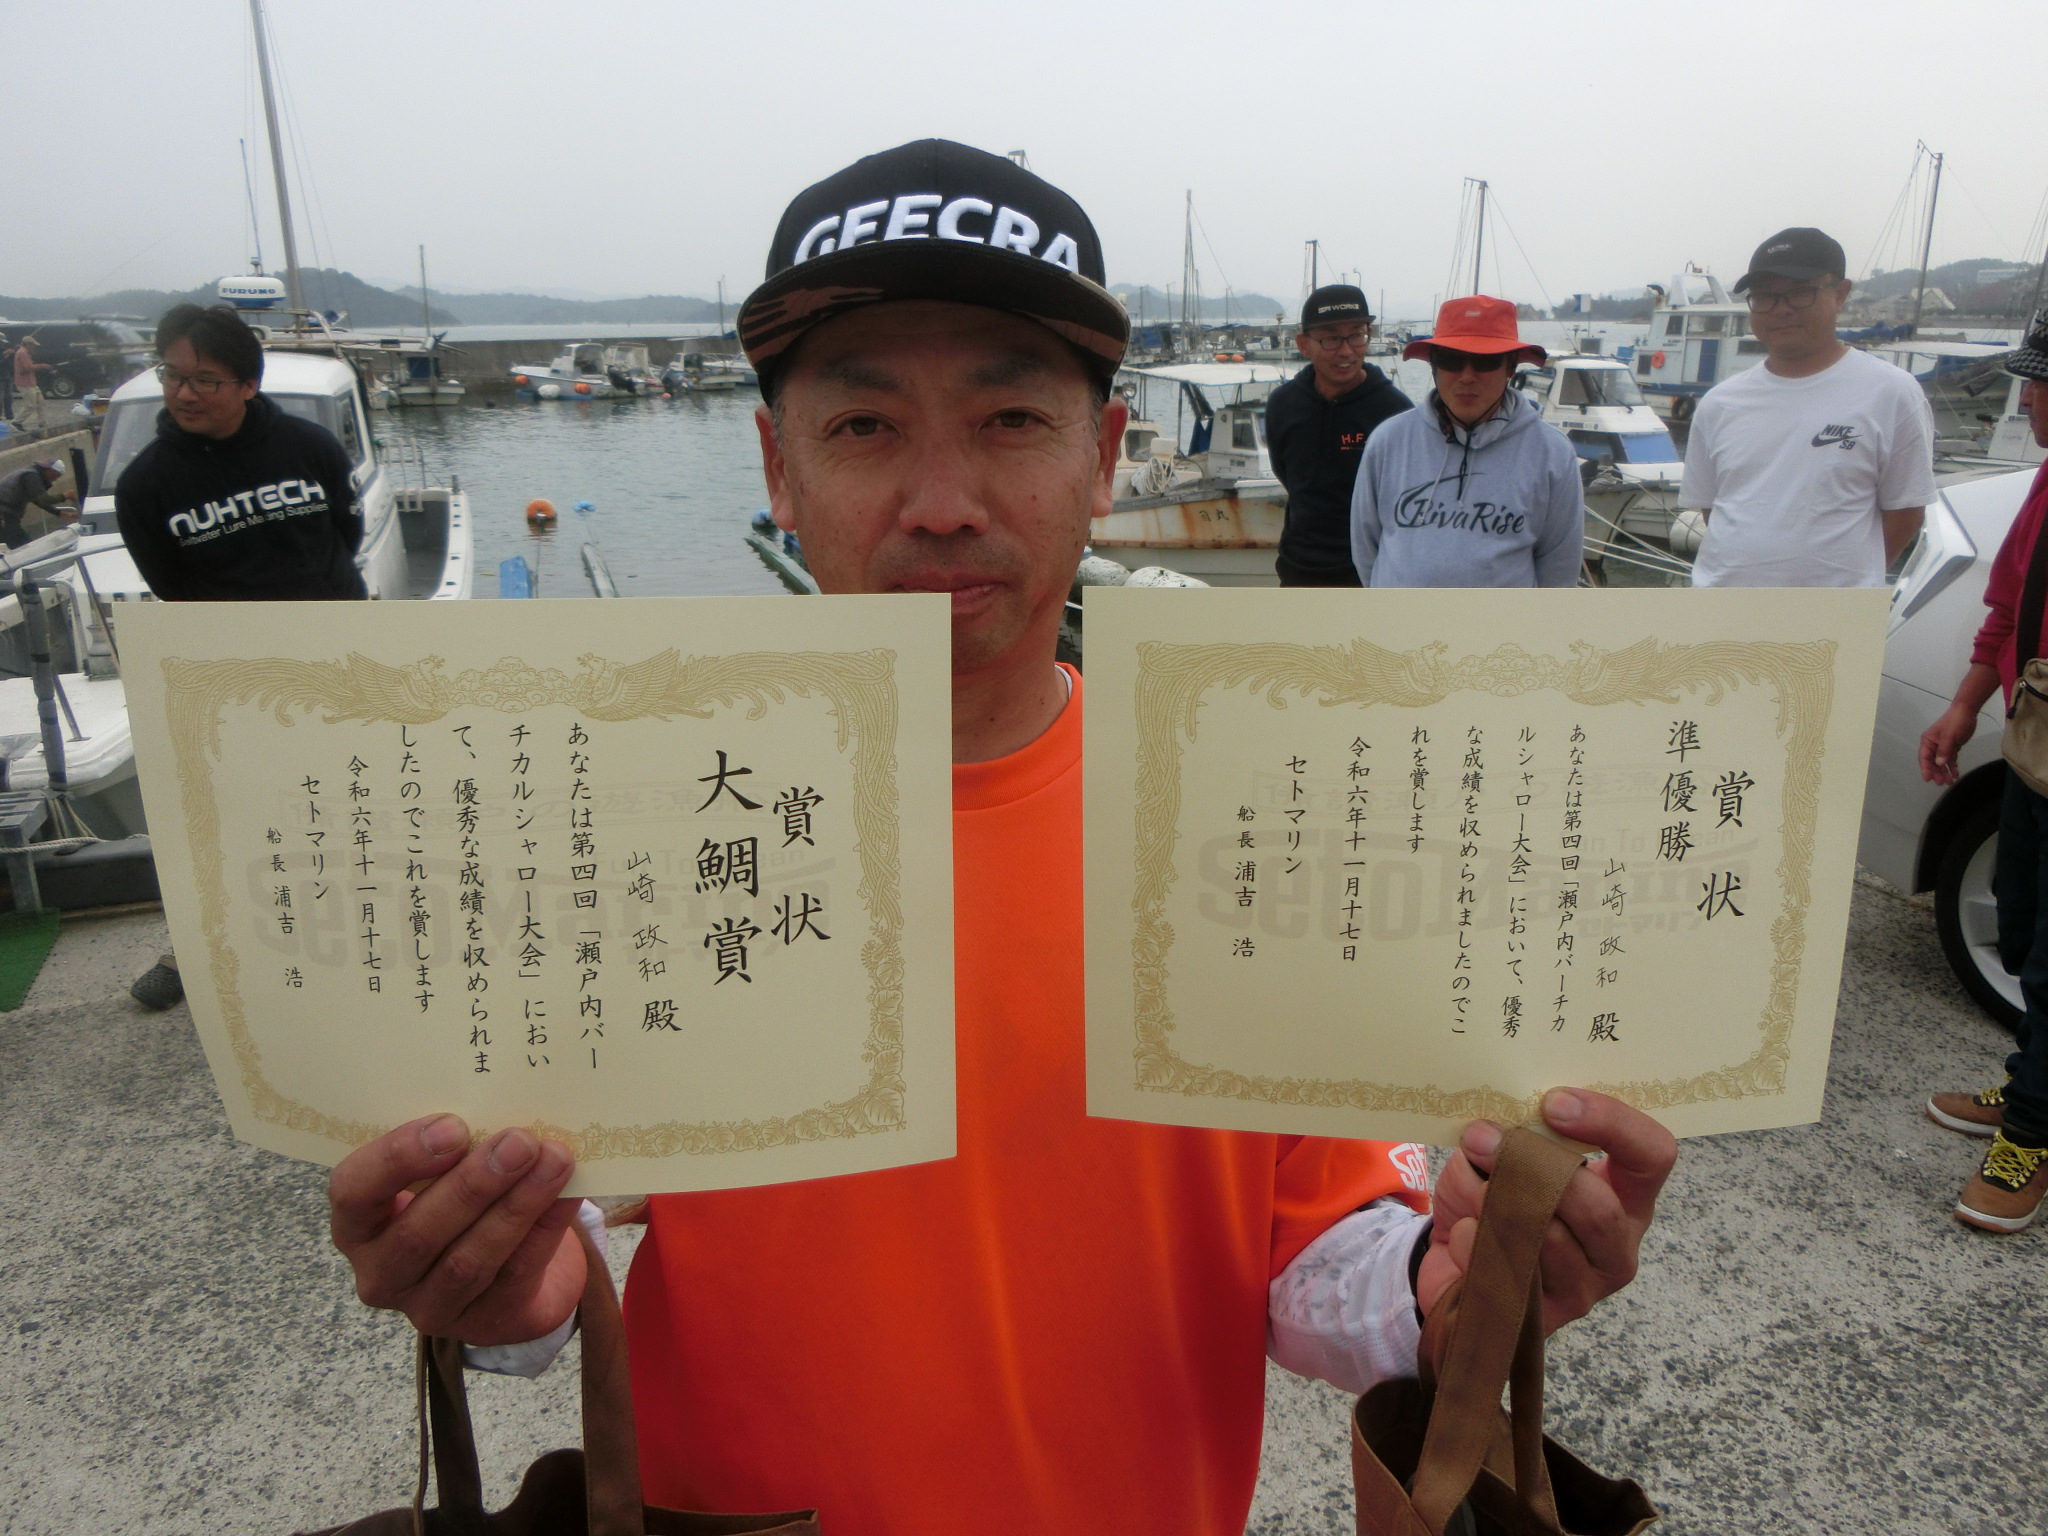 GEECRA
FURUNO
NUHTECH
Saltwater Lure Making Supplies
SPI WORKS
H.F.
RivaRise
NIKE
SB
賞状
大鯛賞
山崎 政和 殿
あなたは第四回「瀬戸内バー
チカルシャロー大会」におい
て、優秀な成績を収められま
したのでこれを賞します
令和六年十一月十七日
セトマリン
船長 浦吉 浩
SetoMarine
賞状
準優勝
山崎 政和 殿
あなたは第四回「瀬戸内バーチカ
ルシャロー大会」において、優秀
な成績を収められましたのでこ
れを賞します
令和六年十一月十七日
セトマリン
船長 浦吉 浩
SetoMarine
Seto